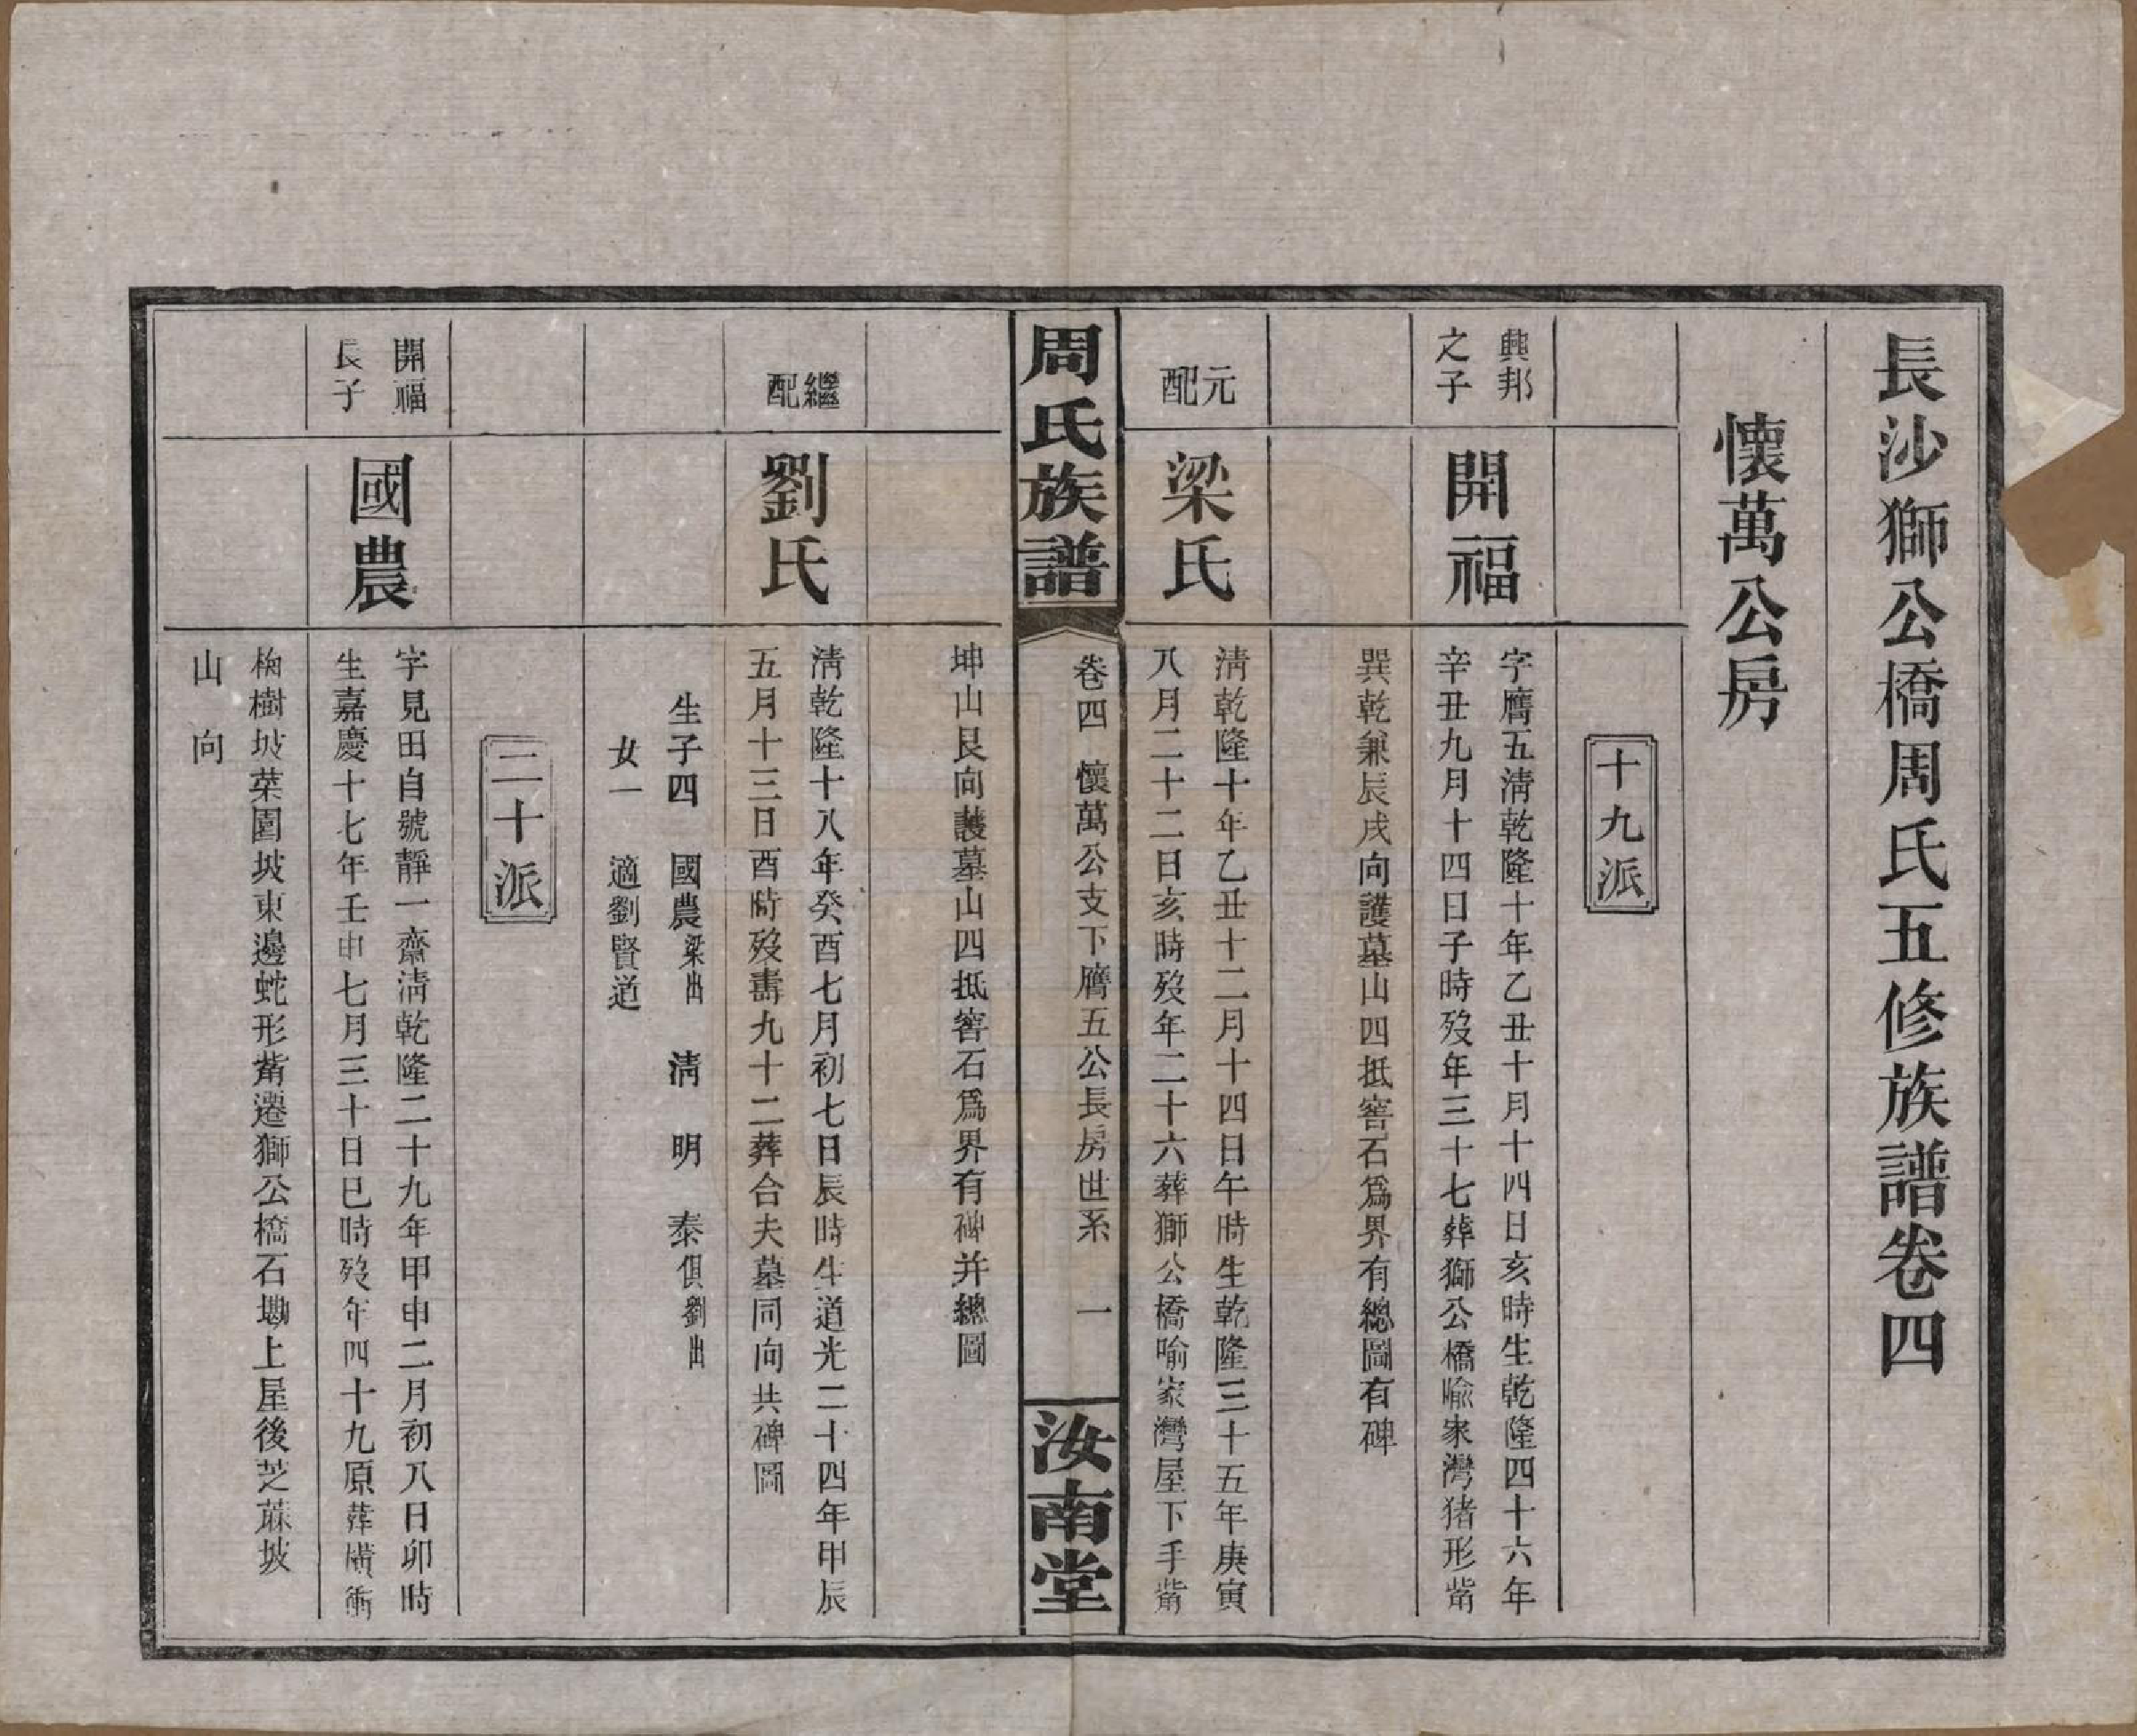 長沙獅公橋周氏五修族譜卷四
懷萬公房
十九派
興邦
之子
開福
字膺五淸乾隆十年乙丑十月十四日亥時生乾隆四十六年
辛丑九月十四日子時歿年三十七葬獅公橋喻家灣猪形嘴
巽乾兼辰戌向護墓山四抵窖石爲界有總圖有碑
元
配
梁氏
淸乾隆十年乙丑十二月十四日午時生乾隆三十五年庚寅
八月二十二日亥時歿年二十六葬獅公橋喻家灣屋下手嘴
周氏族譜
卷四 懷萬公支下膺五公長房世系 一
汝南堂
坤山艮向護墓山四抵窖石爲界有碑并總圖
繼
配
劉氏
淸乾隆十八年癸酉七月初七日辰時生道光二十四年甲辰
五月十三日酉時歿壽九十二葬合夫墓同向共碑圖
生子四 國農梁出 淸 明 泰俱劉出
女一 適劉賢道
二十派
開福
長子
國農
字見田自號靜一齋淸乾隆二十九年甲申二月初八日卯時
生嘉慶十七年壬申七月三十日巳時歿年四十九原葬橫衝
樹坡菜園坡東邊蛇形嘴遷獅公橋石墈上屋後芝蔴坡
山 向